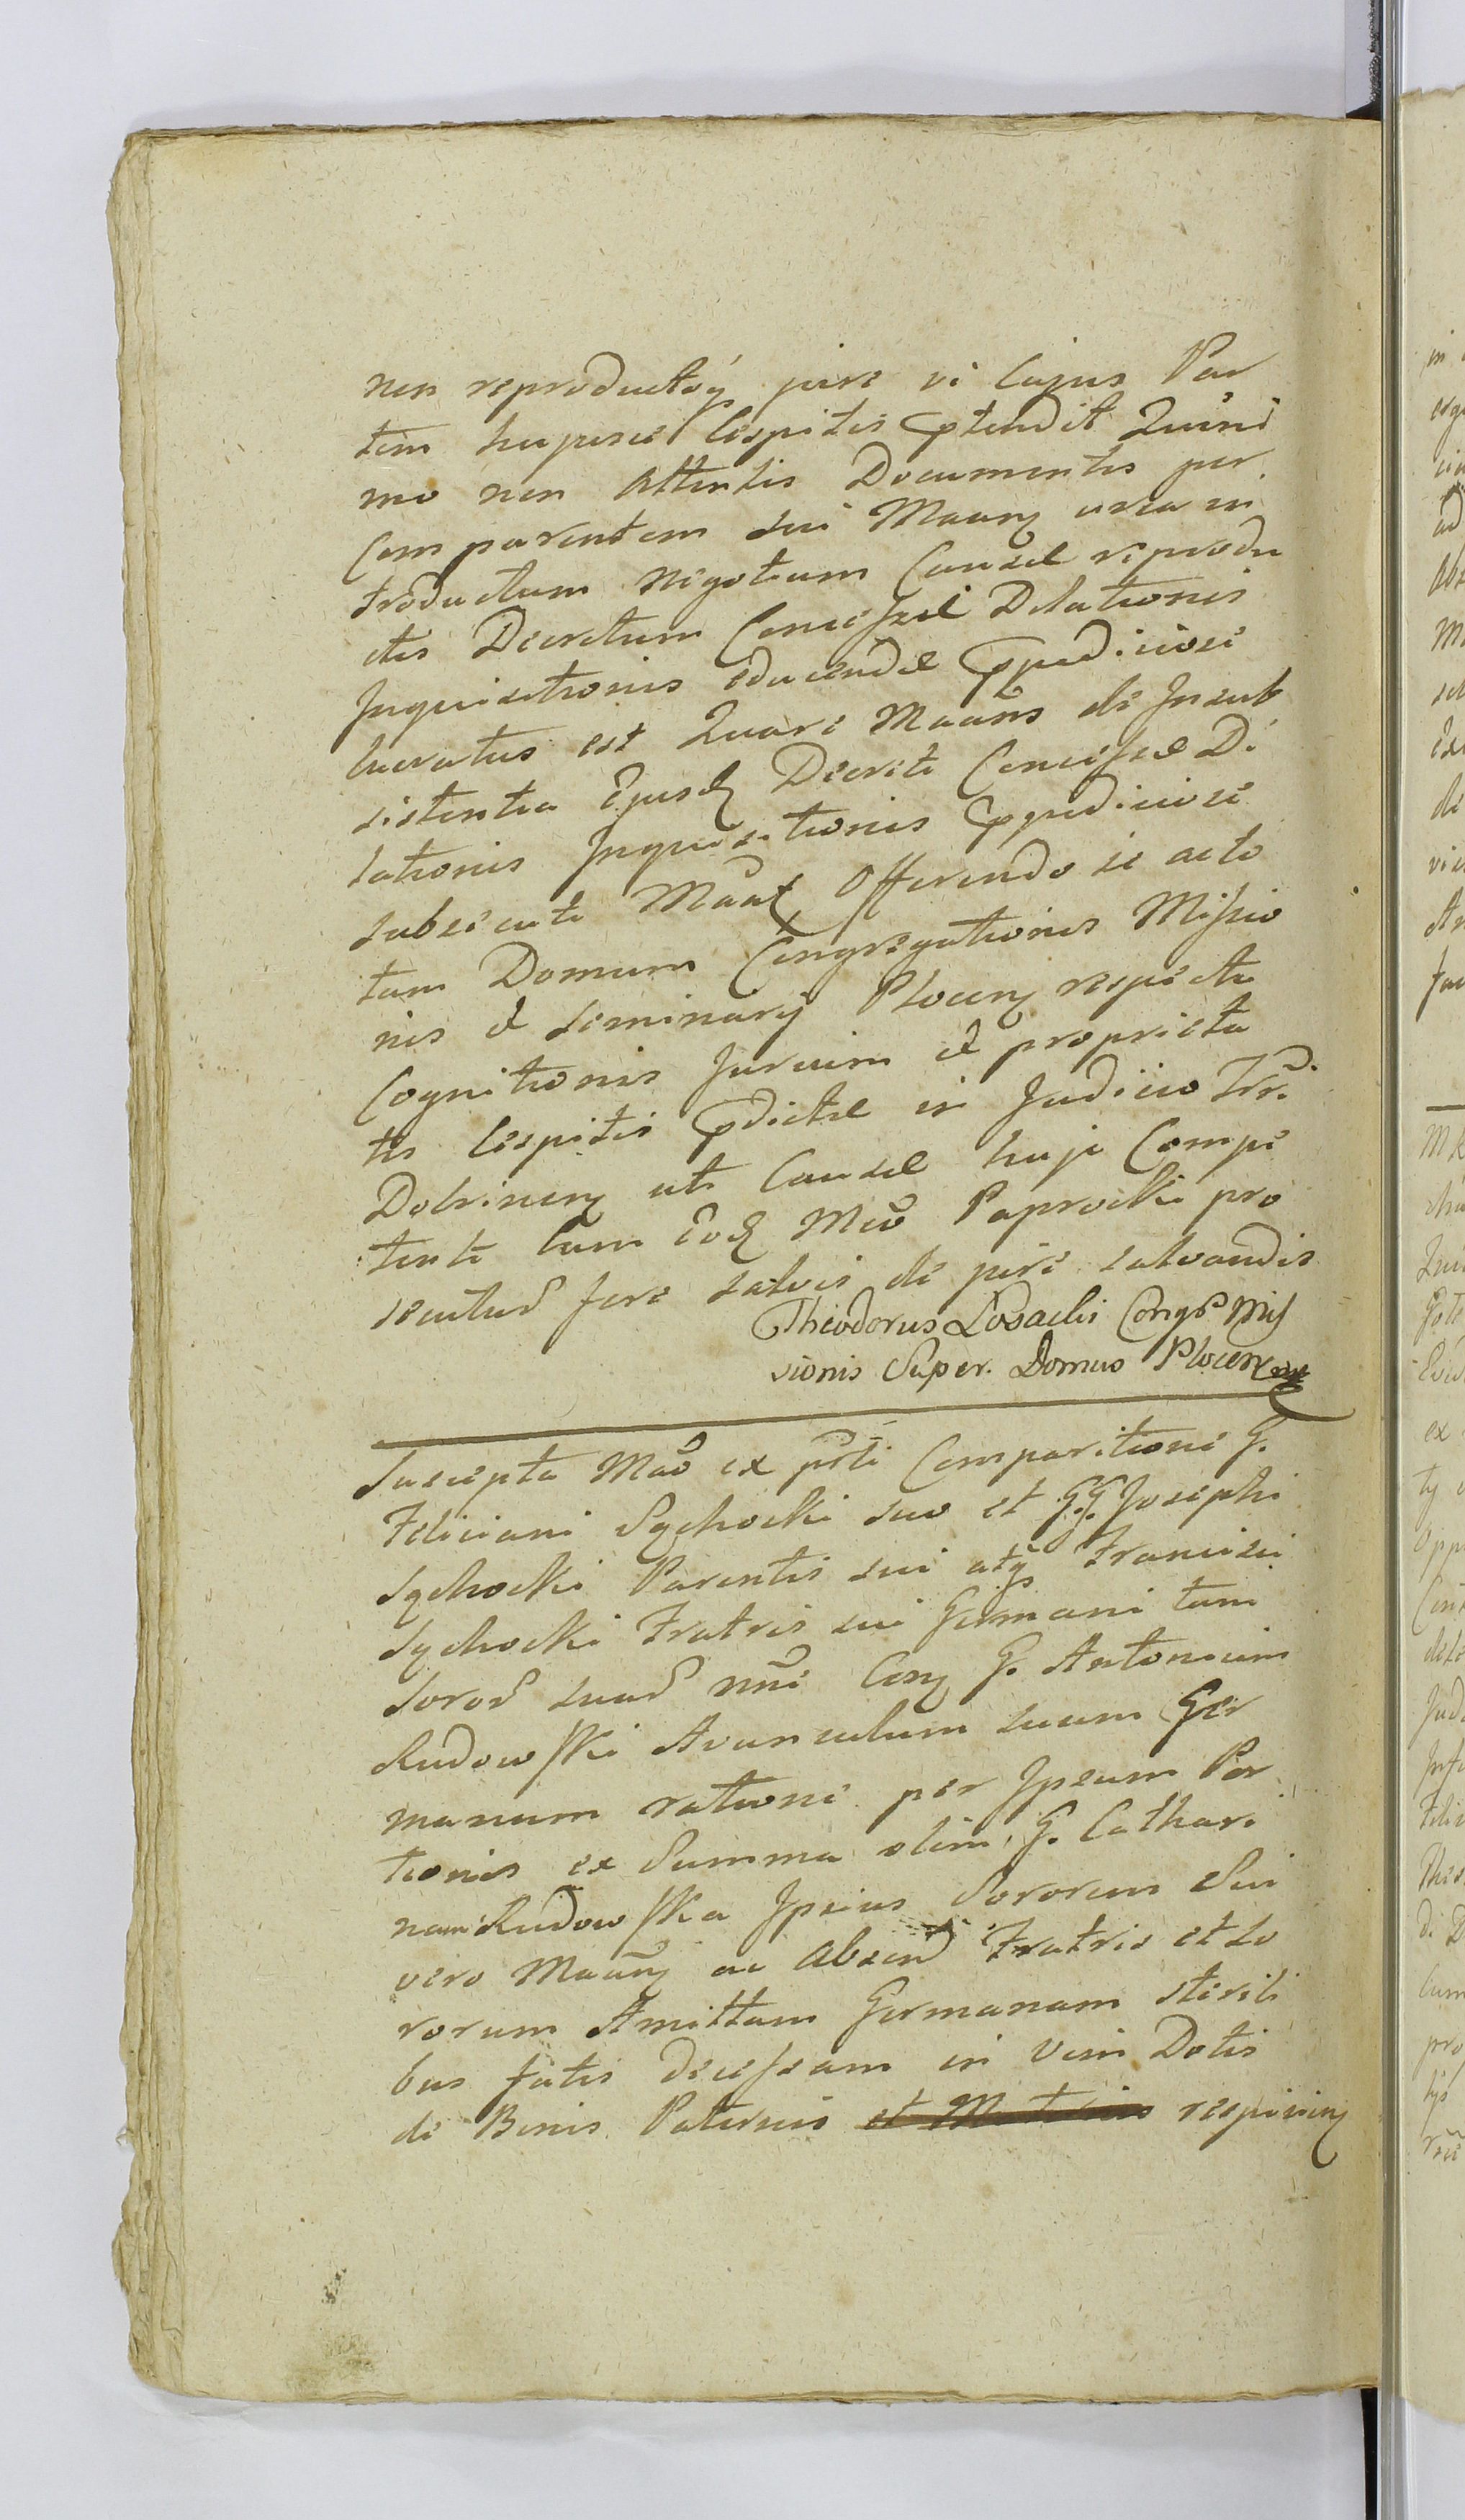 non reproductoq jure vi Cujus Par
tem hujusce Cespitis ptendit Quini
mo non Attentis Documentis per
Comparentem sui Maanz circa in
troductum Negotium Causæ reprodu
ctis Decretum Concessæ Dilationis
Inquisitionis educendæ ppudiciose
lucratus est Quare Maans de Insub
sistentia Ejusd Decreti Concessæ Di
lationis Inquisitionis ppudiciose
subsecuti Maat Offerendo se acto
tam Domum Congregationis Missio
nis & Seminarij Plocenz respectu
Cognitionis Jurium & proprieta
tis Cespitis pdictæ in Judicio Trri
Dobrinenz uti Causæ huji Compe
tenti Cum Eod Mco Paprocki pro
secutur Jure salvis de jure salvandis
Theodorus Losacki Congr Mis
sionis Super. Domus Plocen
Suscepta Mao ex prti Comparitione G.
Feliciani Sychocki suo et G.G. Josephi
Sychocki Parentis sui atq Francisci
Sychocki Fratris sui Germani tum
Soror suar nne Conz G. Antonium
Rudowski Avunculum suum Ger
manum ratione per Ipsum Por
tionis ex Summa olim G. Cathari
nam Rudowska Ipsius Sororem Sui
vero Maanz ac Absen Fratris et So
rorum Amittam Germanam sterili
bus fatis decessam in Vim Dotis
de Bonis Paternis et Maternis respicienz